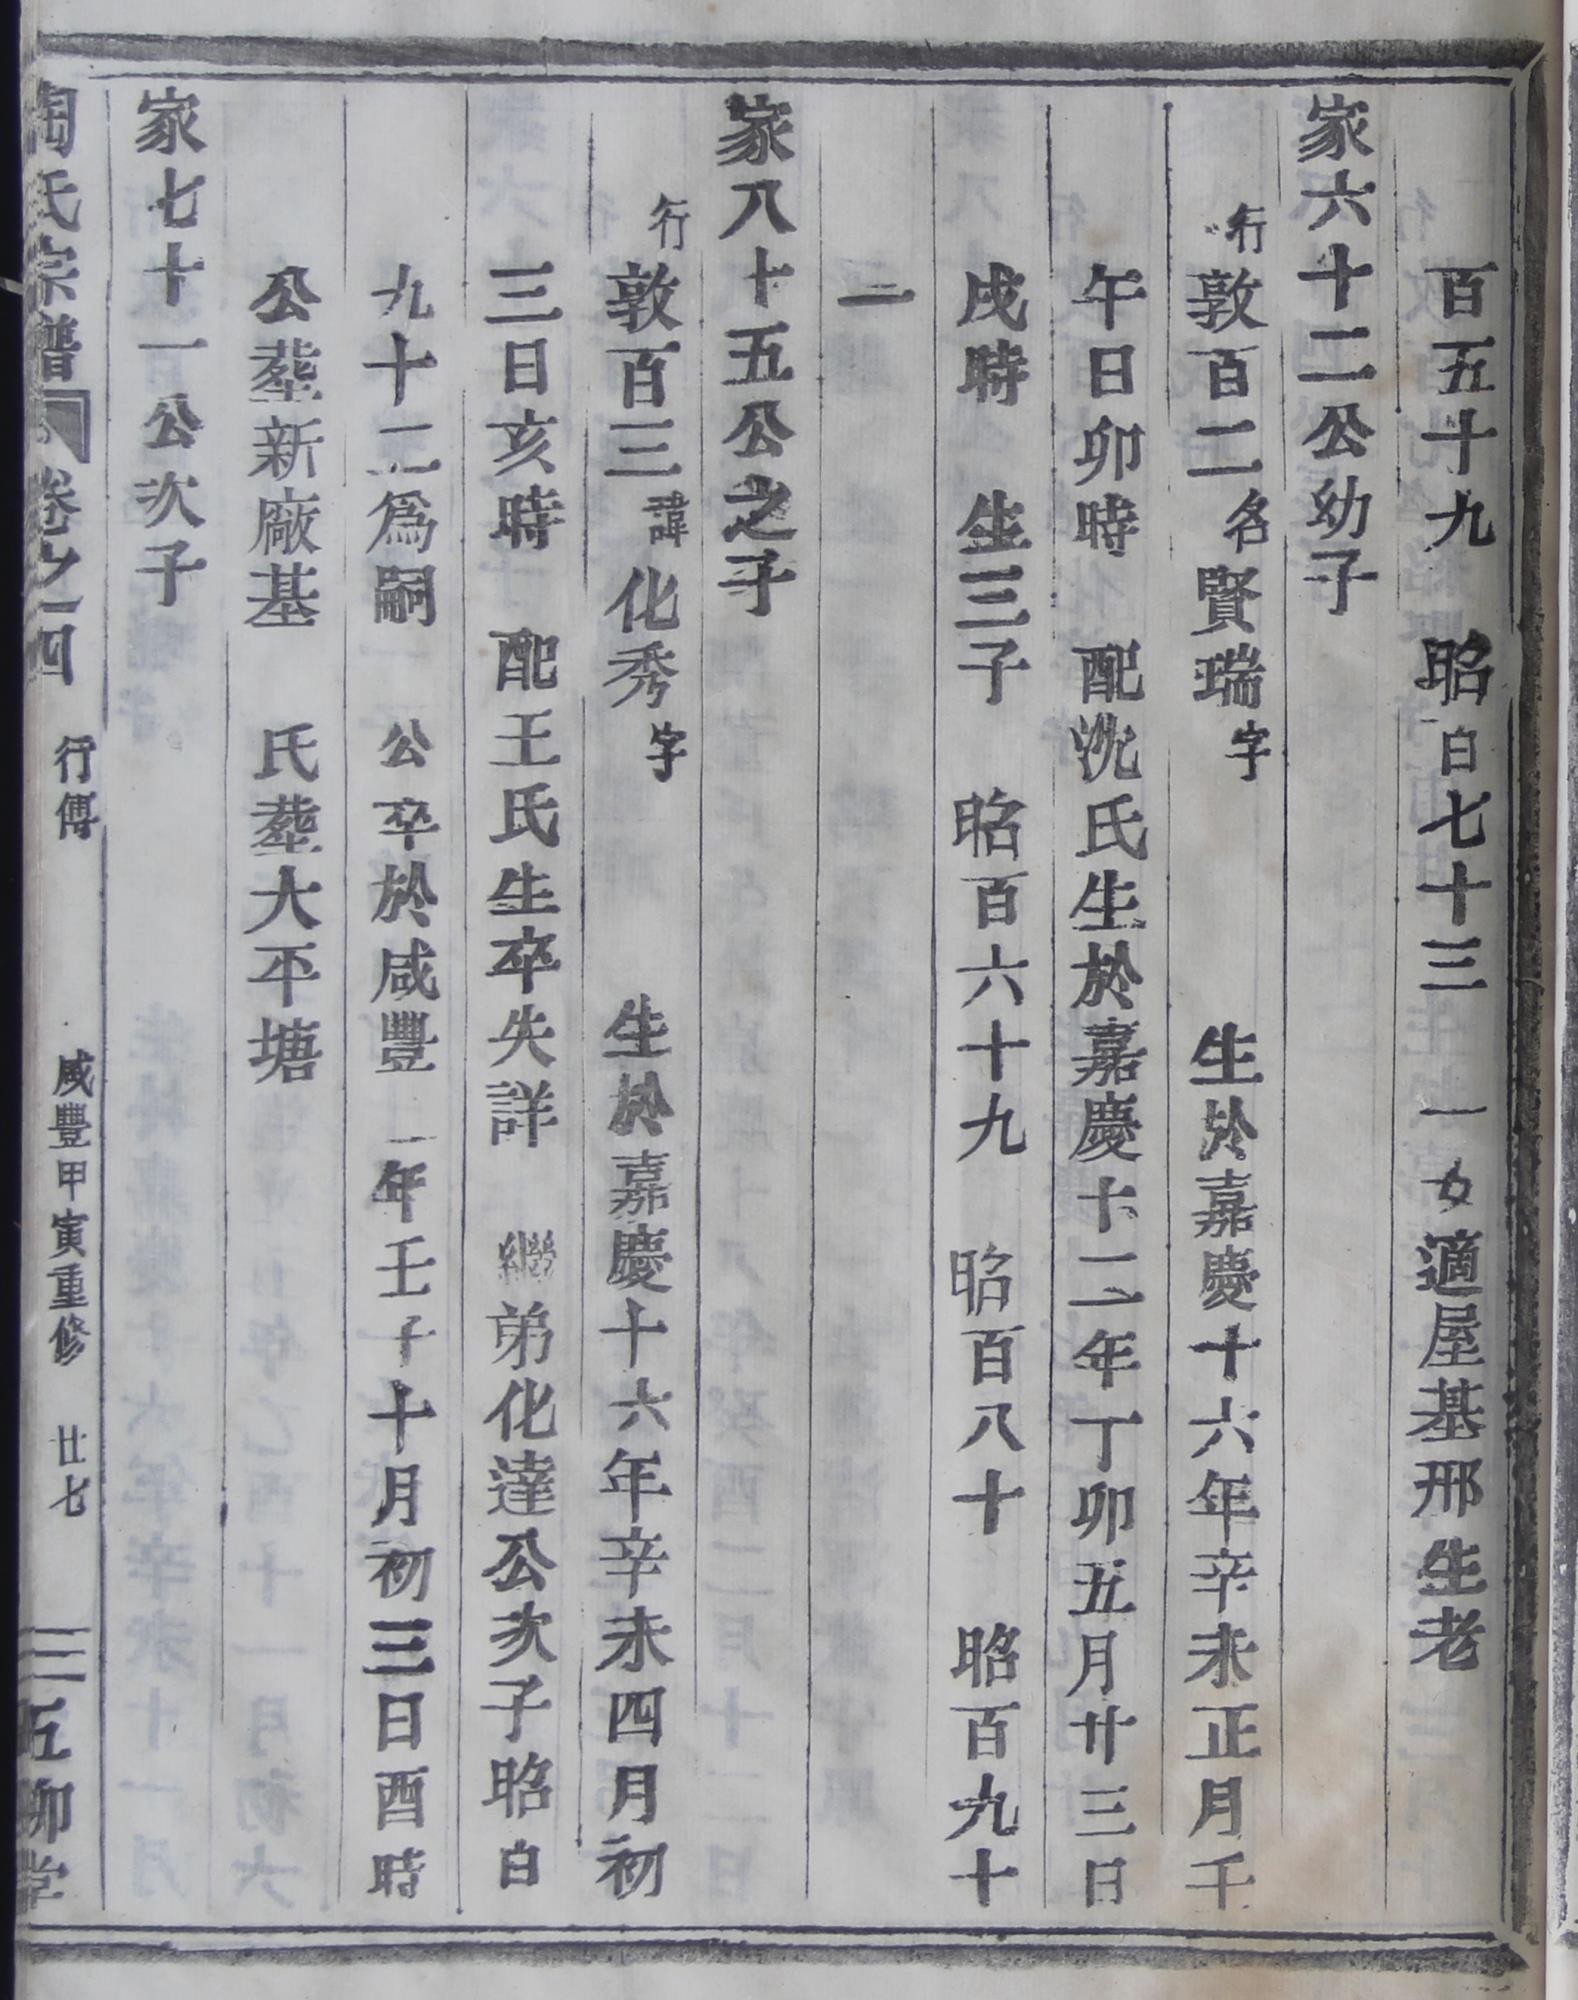 百五十九　昭白七十三　一女適屋基邢生老
家六十二公幼子
行敦百二名賢瑞字　生於嘉慶十六年辛未正月千
午日卯時　配沈氏生於嘉慶十二年丁卯五月廿三日
戌時　生三子　昭百六十九　昭百八十　昭百九十
一
家八十五公之子
行敦百三諱化秀字　生於嘉慶十六年辛未四月初
三日亥時　配王氏生卒失詳　繼弟化達公次子昭白
九十二爲嗣　公卒於咸豐二年壬子十月初三日酉時
公塟新廠基　氏塟大平塘
家七十一公次子
陶氏宗譜　卷之四　行傳　咸豐甲寅重修　廿七　五柳堂